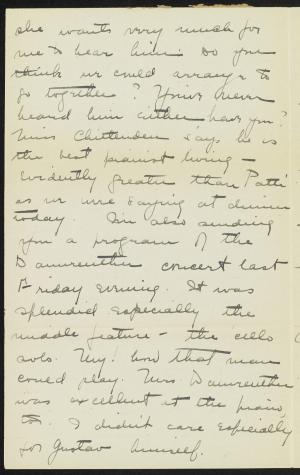 she wants very much for
me to hear him. Do you
think we could arrange to
go together? You've never
heard him either have you?
Miss Chittenden says he is
the best pianist living –
Evidently greater than Patti
as we were saying at dinner
today. I'm also sending
you a program of the
Dannreuther concert last
Friday evening. It was
splendid especially the
middle feature – the cello
solo. My! how that man
could play. Mrs Dannreuther
was excellent at the piano
too. I didn't care especially
for Gustav himself.